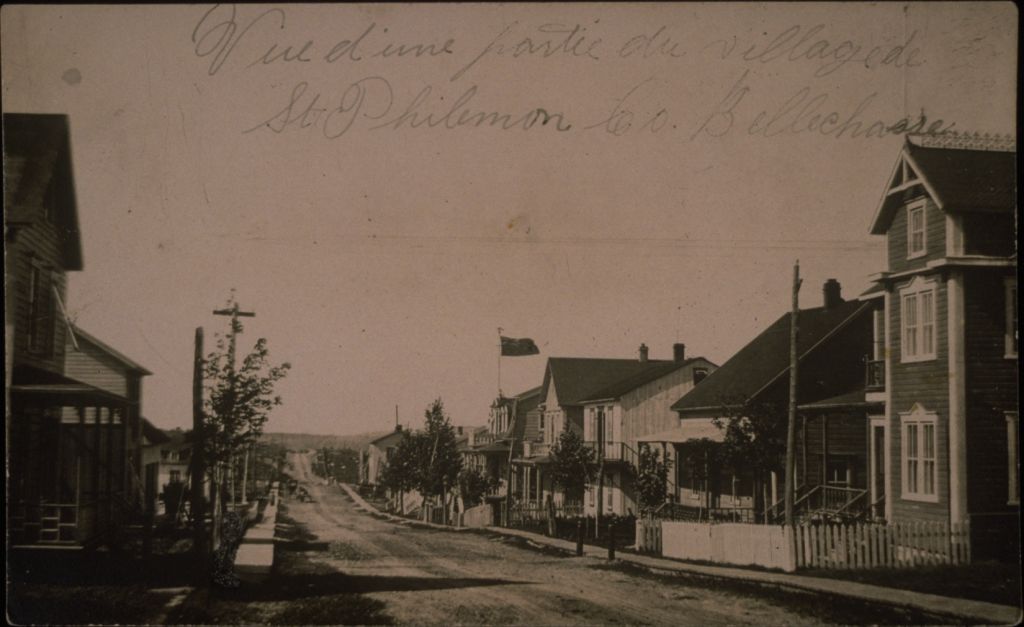 Vue d'une partie du village de
St Philemon Co. Bellechasse